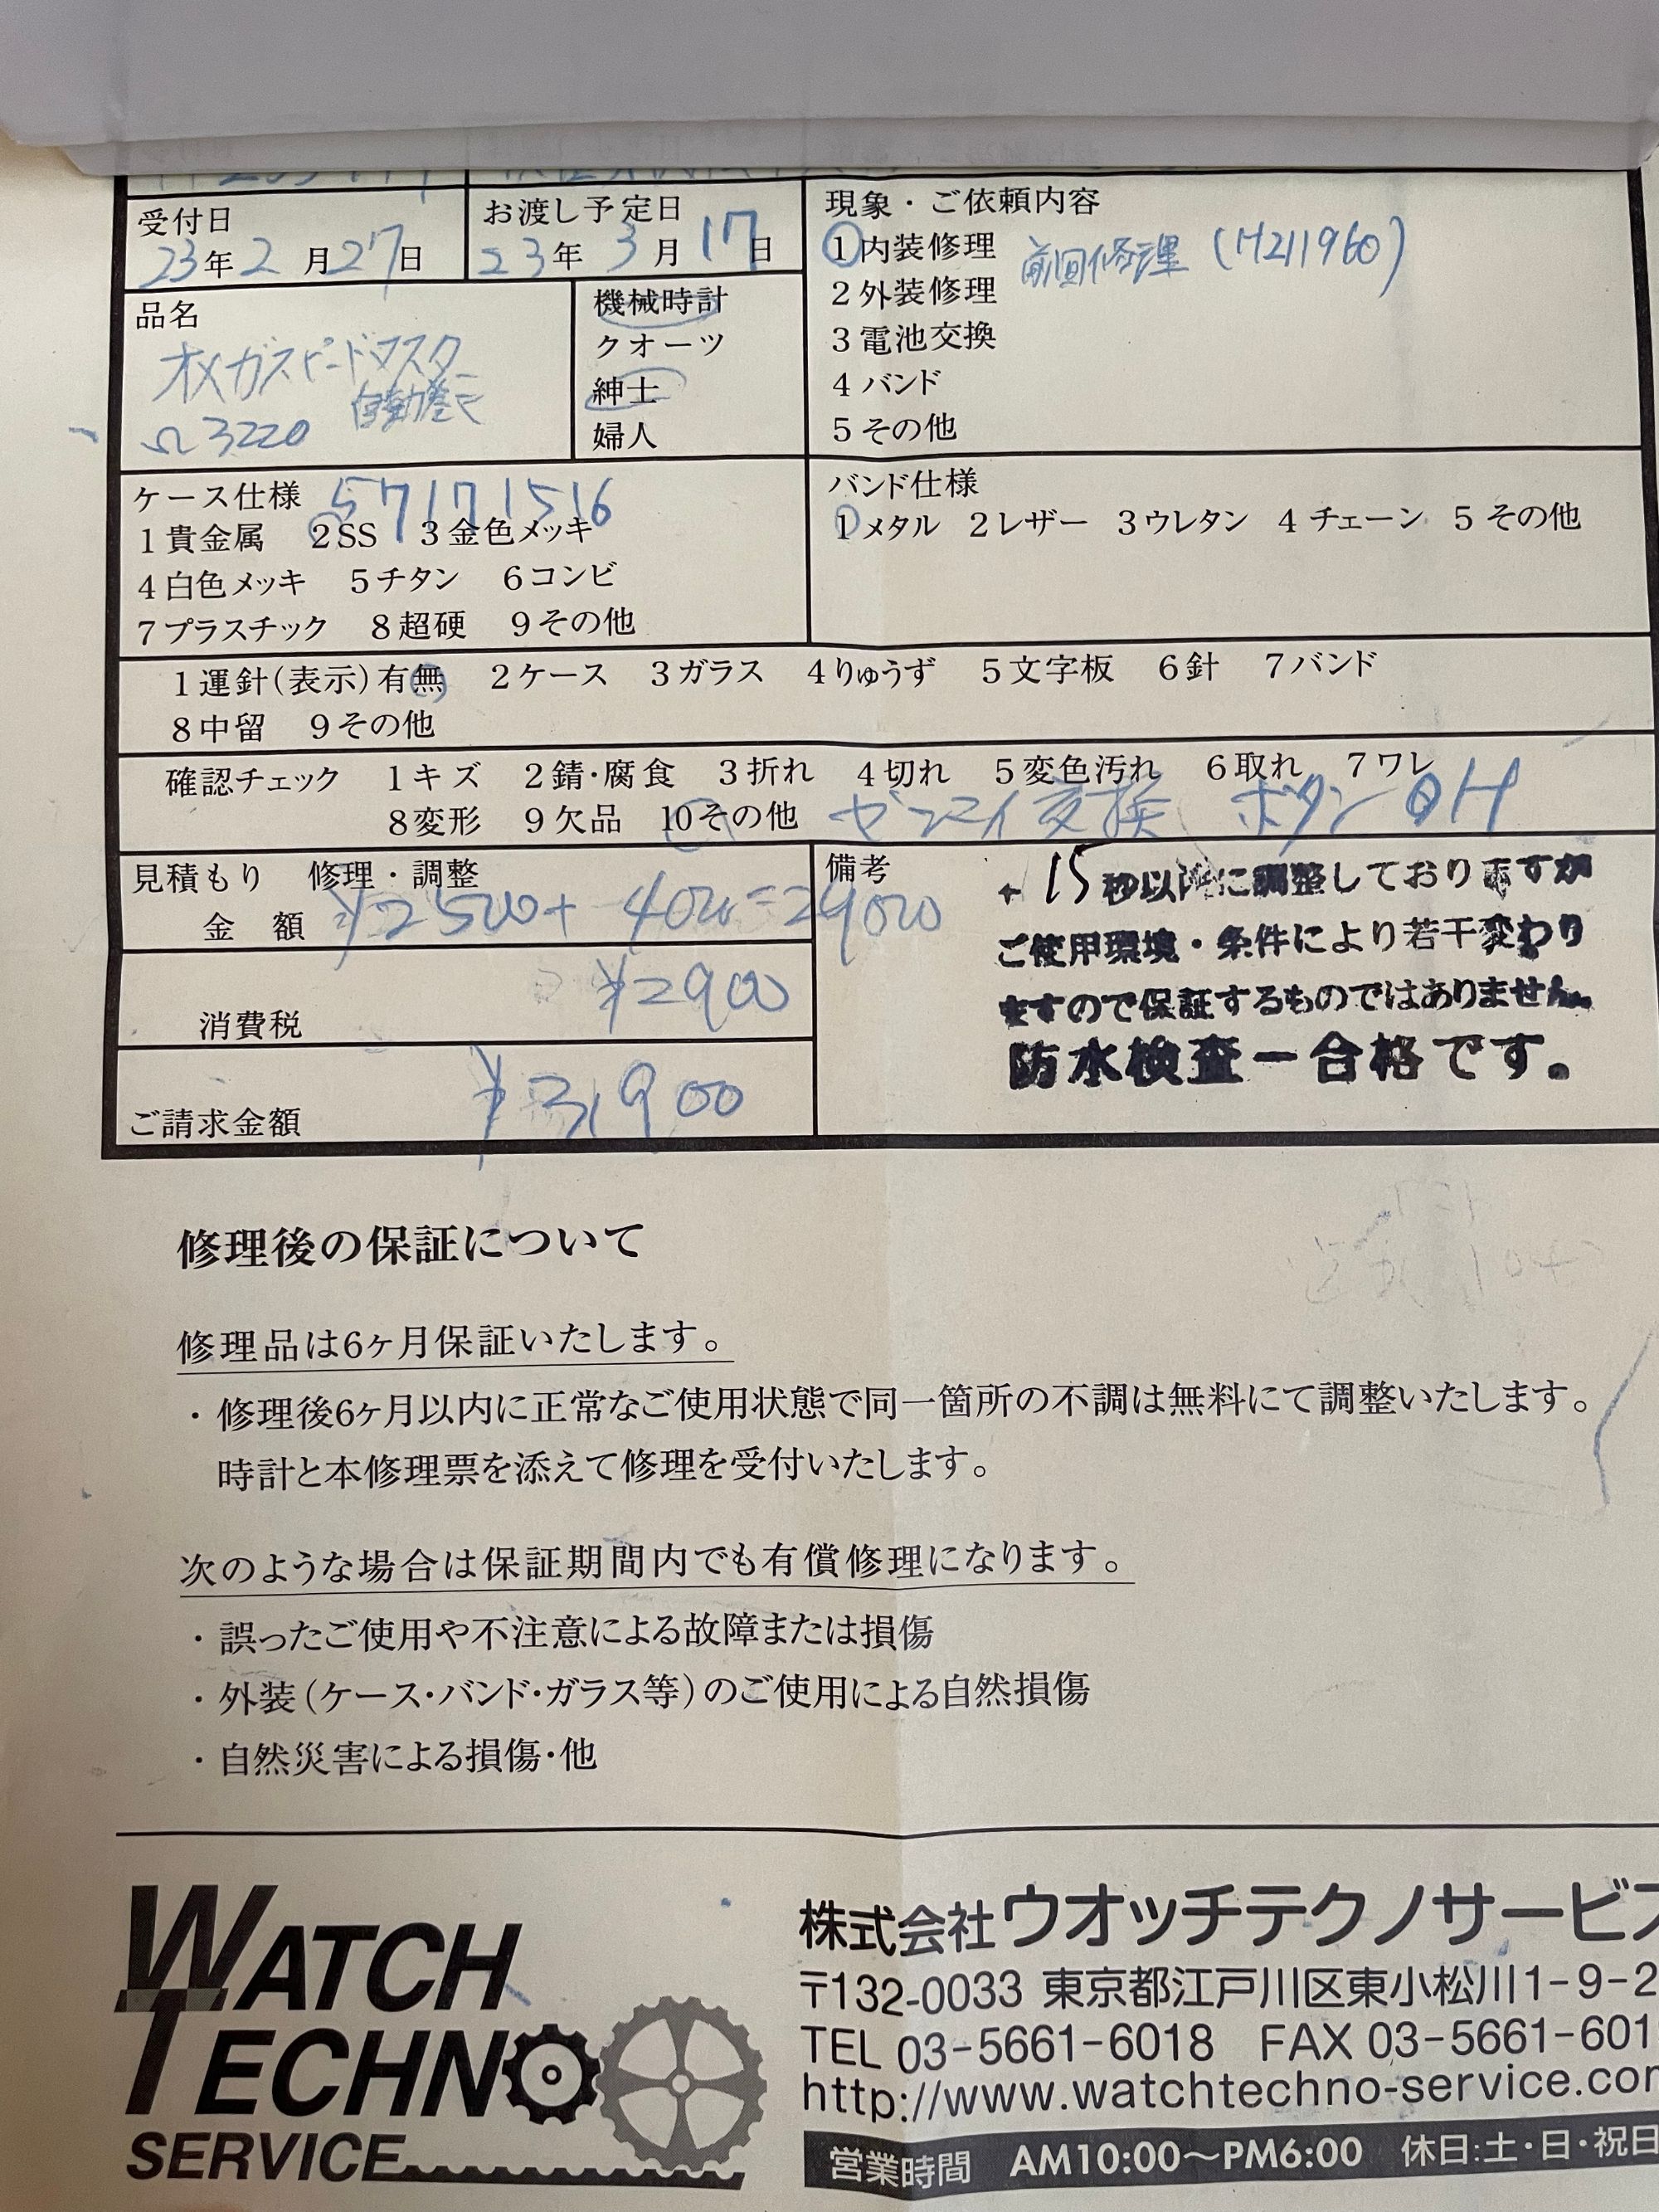 受付日
23年2月27日
お渡し予定日
23年3月17日
現象・ご依頼内容
1内装修理 前回修理(H211960)
2外装修理
3電池交換
4バンド
5その他
品名
オメガスピードマスター
自動巻き
Ω3220
機械時計
クオーツ
紳士
婦人
ケース仕様 57171516
1貴金属 2SS 3金色メッキ
4白色メッキ 5チタン 6コンビ
7プラスチック 8超硬 9その他
バンド仕様
1メタル 2レザー 3ウレタン 4チェーン 5その他
1運針(表示)有無 2ケース 3ガラス 4りゅうず 5文字板 6針 7バンド
8中留 9その他
確認チェック 1キズ 2錆・腐食 3折れ 4切れ 5変色汚れ 6取れ 7ワレ
8変形 9欠品 10その他 ゼンマイ交換 ボタンOH
見積もり 修理・調整
金額 ¥25000+4000=29000
消費税 ¥2900
ご請求金額 ¥31,900
備考
+15秒以内に調整しておりますが
ご使用環境・条件により若干変わり
ますので保証するものではありません
防水検査-合格です。
修理後の保証について
修理品は6ヶ月保証いたします。
・修理後6ヶ月以内に正常なご使用状態で同一箇所の不調は無料にて調整いたします。
時計と本修理票を添えて修理を受付いたします。
次のような場合は保証期間内でも有償修理になります。
・誤ったご使用や不注意による故障または損傷
・外装(ケース・バンド・ガラス等)のご使用による自然損傷
・自然災害による損傷・他
WATCH
TECHNO
SERVICE
株式会社ウオッチテクノサービス
〒132-0033 東京都江戸川区東小松川1-9-2
TEL 03-5661-6018 FAX 03-5661-601
http://www.watchtechno-service.com
営業時間 AM10:00〜PM6:00 休日:土・日・祝日